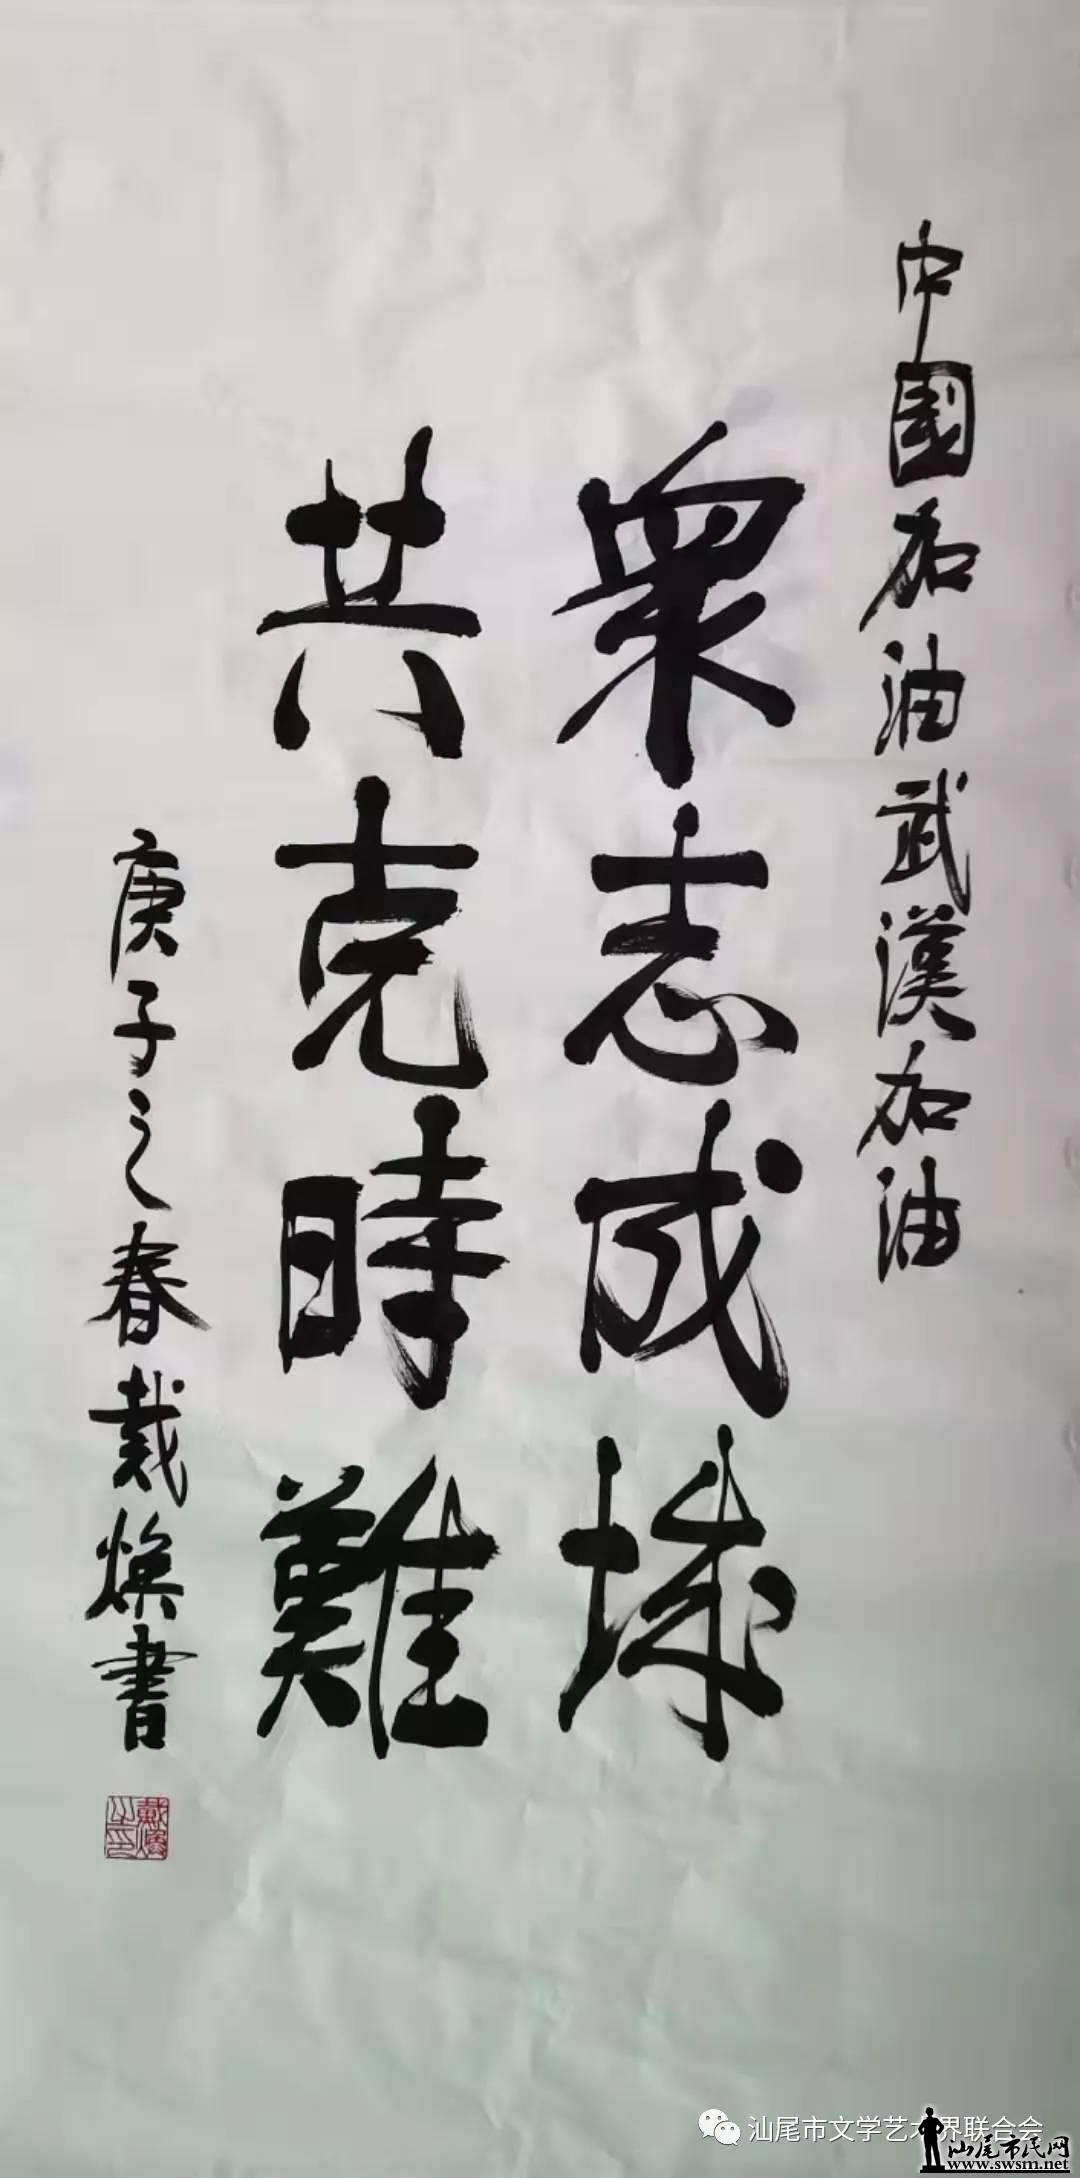 中國加油武漢加油
衆志成城
共克時難
庚子之春戴焕書
戴焕之印
汕尾市文学艺术界联合会
汕尾市民网
www.swsm.net